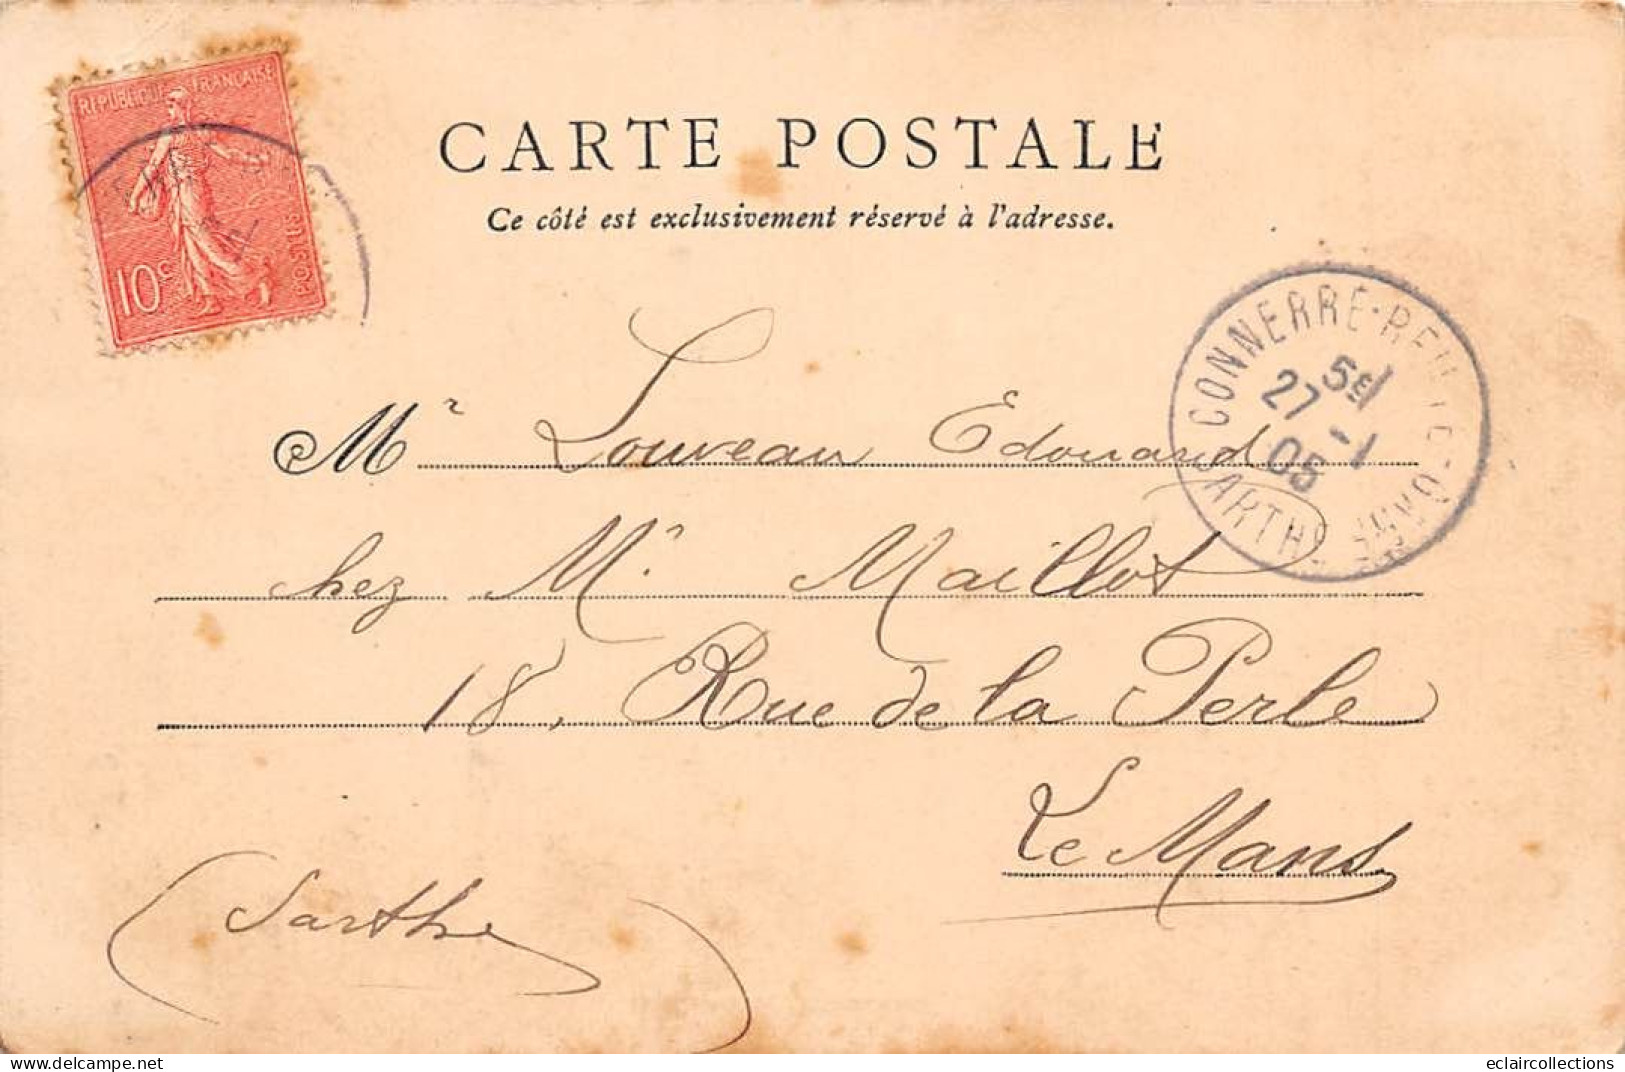 RÉPUBLIQUE FRANÇAISE
POSTES
10c
CARTE POSTALE
Ce côté est exclusivement réservé à l'adresse.
CONNERRÉ-
5E
27 -1
05
SARTHE
Mr Louveau Edouard
chez Mr Maillot
18, Rue de la Perle
Le Mans
(Sarthe)
https://www.delcampe.net
eclaircollections